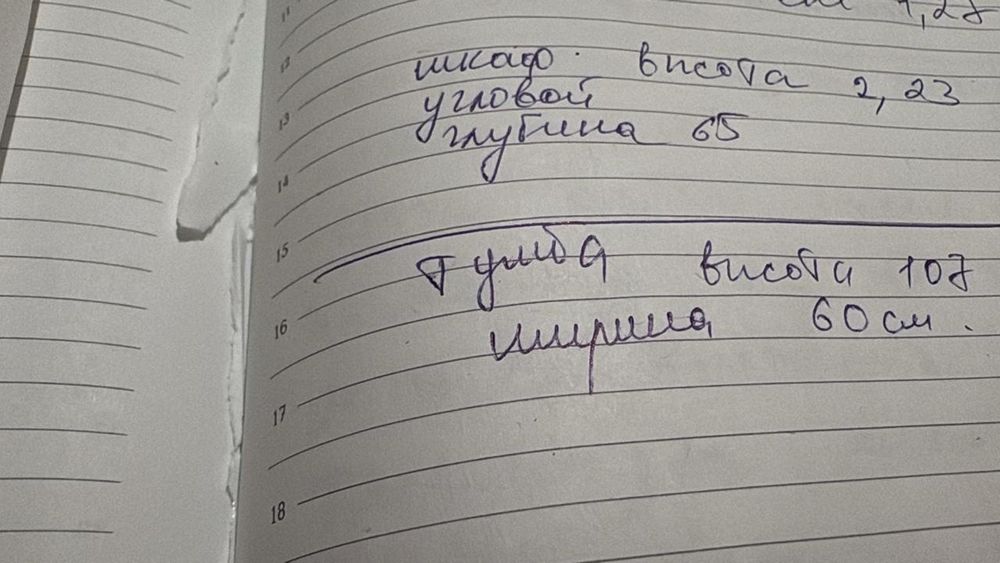 1,27
11
12
шкаф. висота 2,23
13
угловой
глубина 65
14
15
тумба висота 107
16
ширина 60 см.
17
18